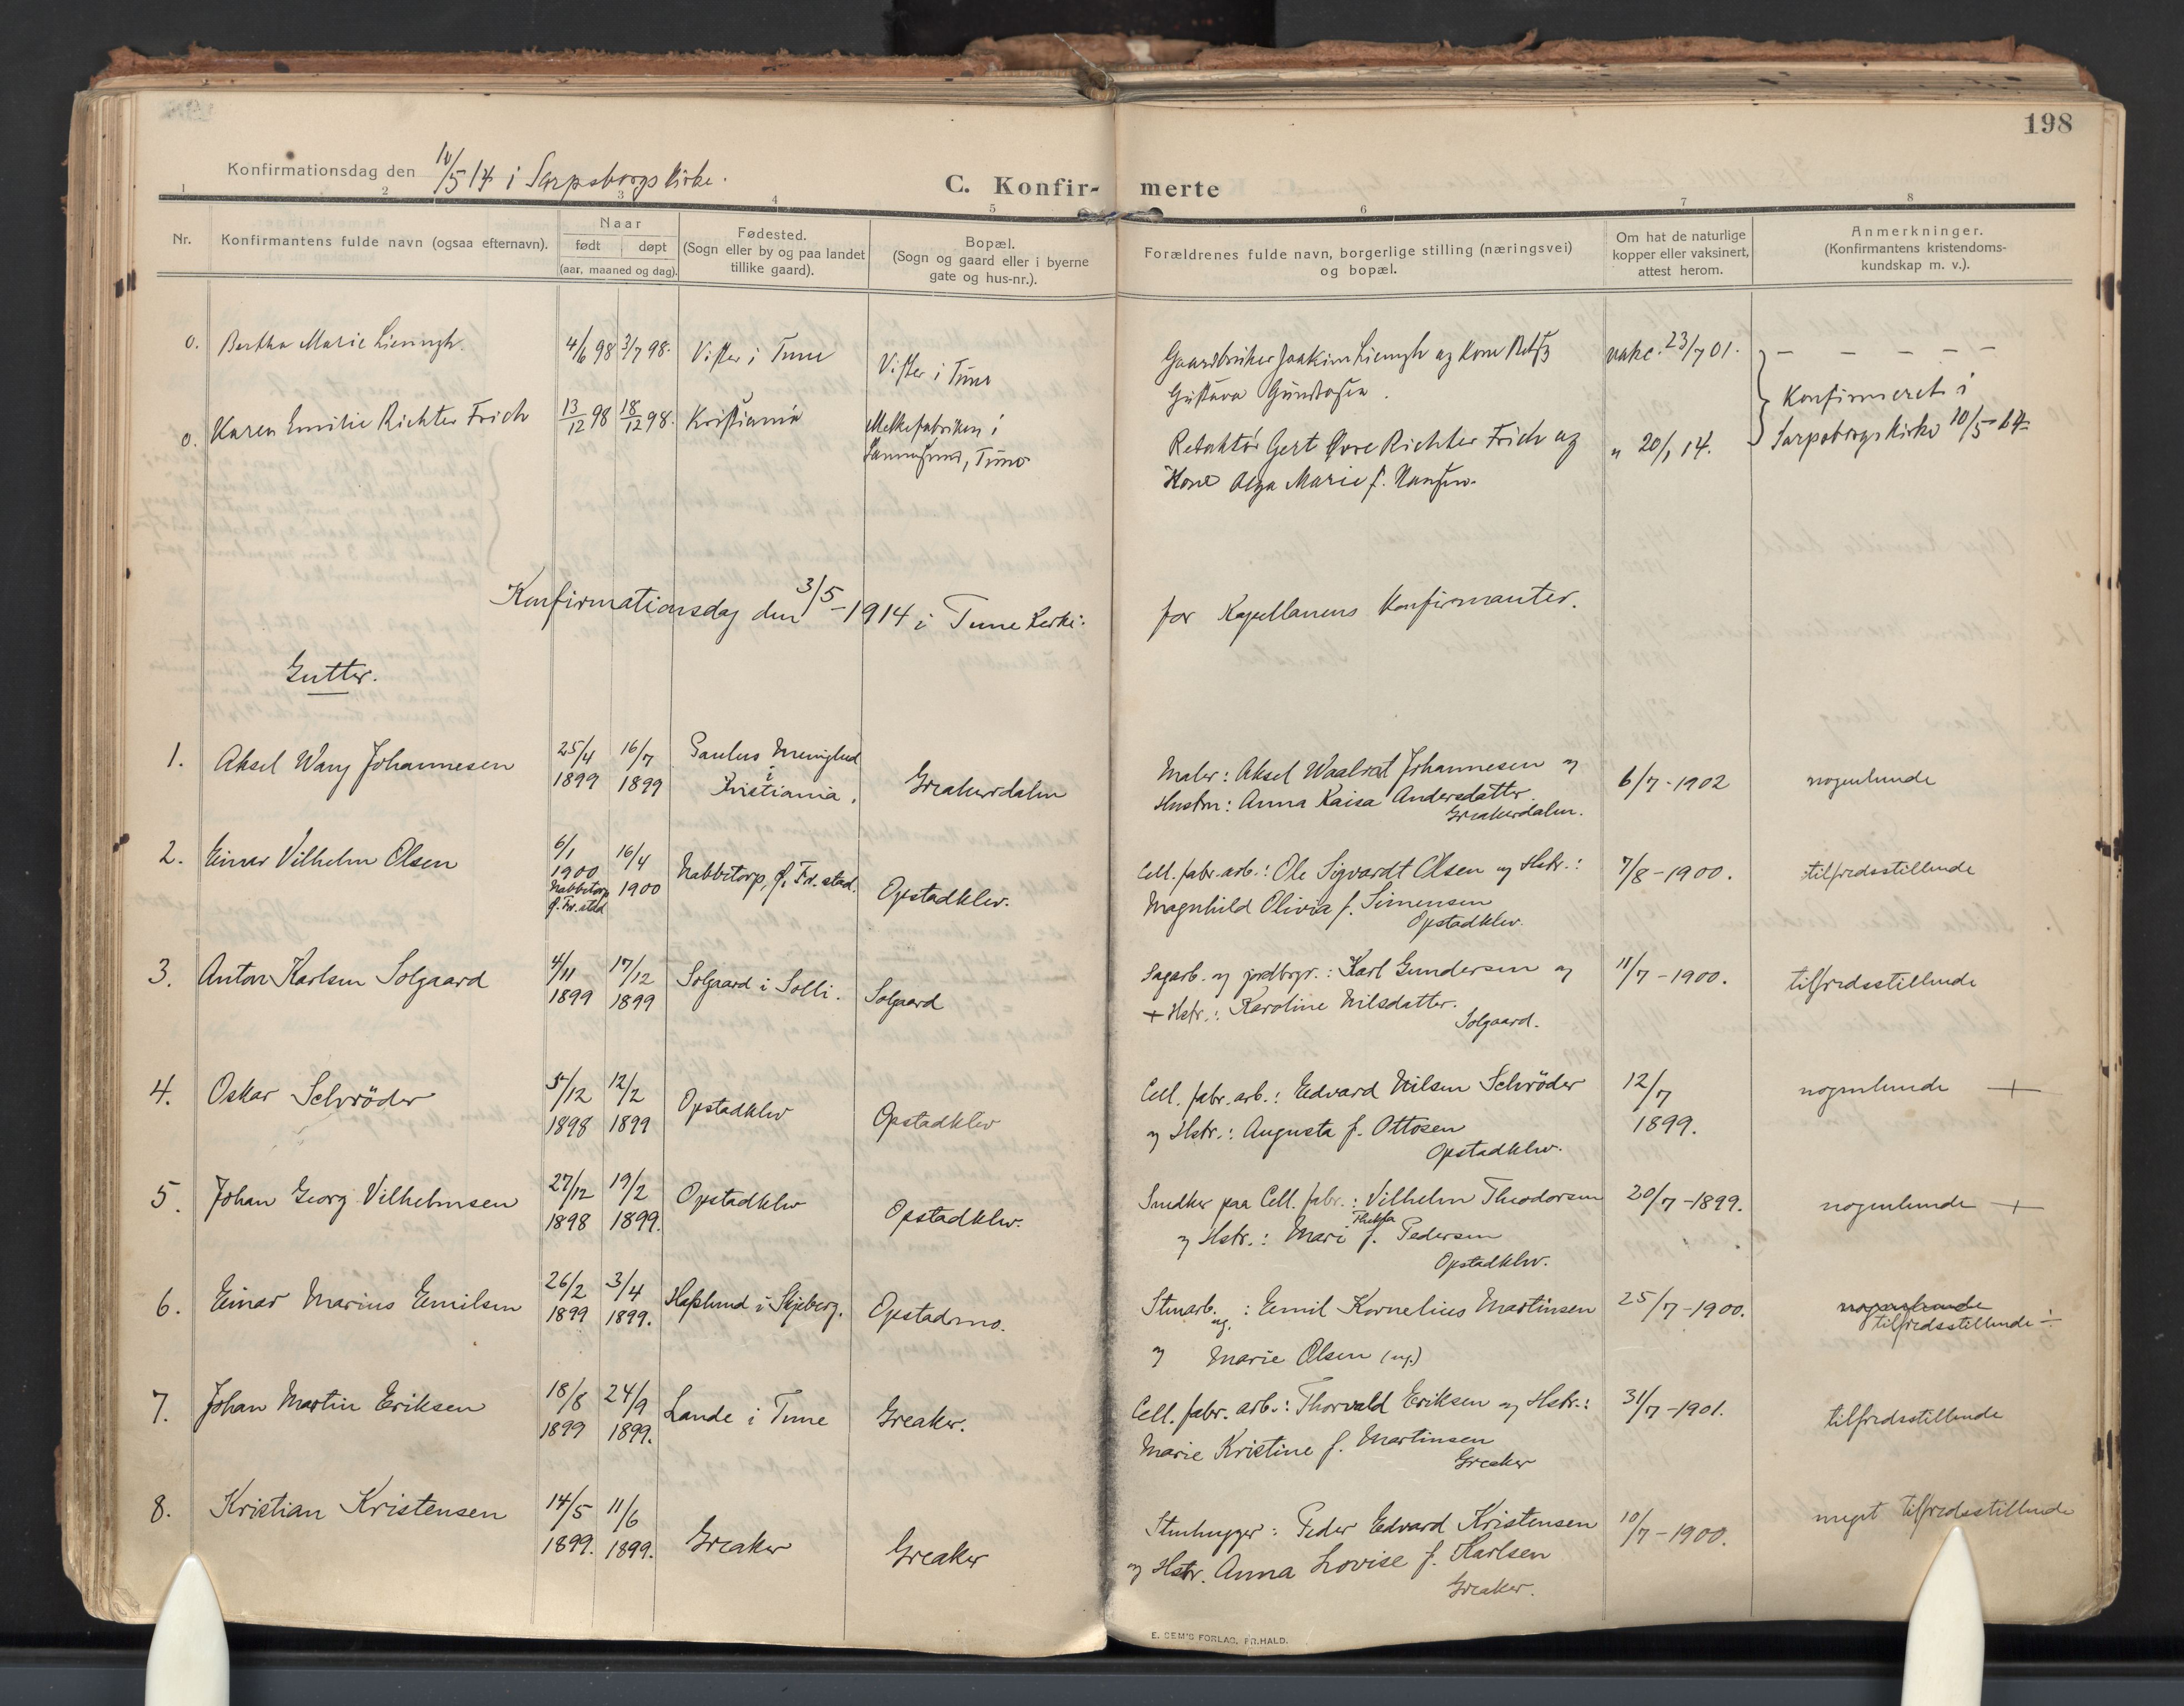 198
Konfirmationsdag den 10/5 14 i Sarpsborgs kirke.
C. Konfir- merte
1 2 3 4 5 6 7 8
Nr.
Konfirmantens fulde navn (ogsaa efternavn).
Naar
født døpt
(aar, maaned og dag).
Fødested.
(Sogn eller by og paa landet
tillike gaard).
Bopæl.
(Sogn og gaard eller i byerne
gate og hus-nr.).
Forældrenes fulde navn, borgerlige stilling (næringsvei)
og bopæl.
Om hat de naturlige
kopper eller vaksinert,
attest herom.
Anmerkninger.
(Konfirmantens kristendoms-
kundskap m. v.).
0. Bertha Marie Liengh. 4/6 98 3/7 98. Vister i Tune
Vister i Tune
Gaardbruker Joakim Liengh og Kone
Gustava
vakc. 23/7 01. – – – – –
0. Karen Emilie Richter Frich 13/12 98 18/12 98. Kristiania
Melkefabriken i
Sannesund, Tune
Redaktör Gert Richter Frich og
Kone Olga Marie f. Hansen.
" 20/1 14.
Konfirmeret i
Sarpsborgs kirke 10/5 14
Konfirmationsdag den 3/5 – 1914 i Tune kirke. for Kapellanens konfirmanter.
Gutter.
1. Aksel Wang Johannesen 25/4 1899 16/7 1899
Paulus Menighed
i
Kristiania.
Greakerdalen
Maler: Aksel Johannesen og
Hustru: Anna Kaisa Andersdatter.
Greakerdalen.
6/7 - 1902 nogenlunde
2. Einar Vilhelm Olsen
6/1 1900
Nabbetorp
Ø. Fr. stad
16/4 1900
Nabbetorp, Ø. Fr. stad.
Opstadklev.
Cell. fabr. arb.: Ole Sigvardt Olsen og Hstr.:
Magnhild Olivia f. Simensen
Opstadklev.
7/8 - 1900. tilfredsstillende
3. Anton Karlsen Solgaard 4/11 1899 17/12 1899 Solgaard i Solli. Solgaard
Sagarb. og jordbrgr.: Karl Gundersen og
+ Hstr.: Karoline Nilsdatter.
Solgaard.
11/7 - 1900. tilfredsstillende
4. Oskar Schröder 5/12 1898 12/2 1899 Opstadklev Opstadklev
Cell. fabr. arb.: Edvard Nilsen Schröder
og Hstr.: Augusta f. Ottosen
Opstadklev.
12/7 1899. nogenlunde +
5. Johan Georg Vilhelmsen 27/12 1898 19/2 1899. Opstadklev Opstadklev.
Snedker paa Cell. fabr.: Vilhelm Theodorsen
Thekla
og Hstr.: Mari f. Pedersen
Opstadklev.
20/7 - 1899. nogenlunde +
6. Einar Marius Emilsen 26/2 1899 3/4 1899. Haslund i Skjeberg. Opstadmo.
Stenarb. ug.: Emil Kornelius Martinsen
og Marie Olsen (ug.)
25/7 - 1900.
nogenlunde
tilfredsstillende ÷
7. Johan Martin Eriksen 18/8 1899 24/9 1899. Lande i Tune Greaker.
Cell. fabr. arb.: Thorvald Eriksen og Hstr.:
Marie Kristine f. Martinsen
Greaker
31/7 - 1901. tilfredsstillende
8. Kristian Kristensen 14/5 1899. 11/6 1899. Greaker Greaker
Stenhugger: Peder Edvard Kristensen
og Hstr. Anna Lovise f. Karlsen
Greaker.
10/7 - 1900. meget tilfredsstillende
E. SEM'S FORLAG, FR.HALD.